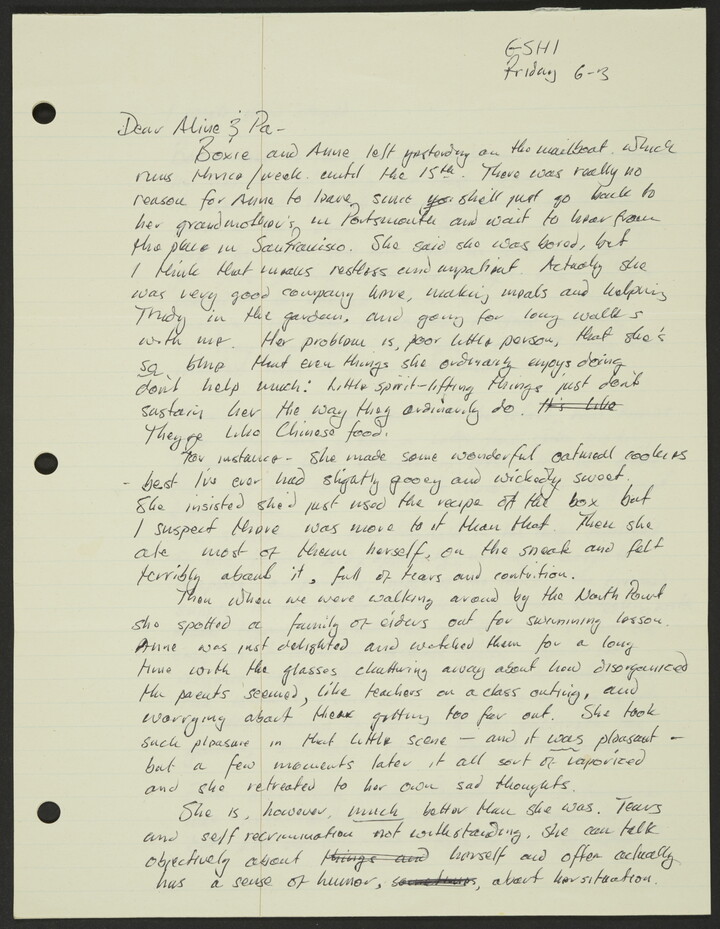 ESHI
Friday 6-3
Dear Aline & Pa-
Boxie and Anne left yesterday on the mailboat which
runs thrice/week until the 15th. There was really no
reason for Anne to leave, since she'll just go back to
her grandmother's in Portsmouth and wait to hear from
the place in San Francisco. She said she was bored, but
I think that means restless and impatient. Actually she
was very good company here, making meals and helping
Trudy in the garden, and going for long walks
with me. Her problem is, poor little person, that she's
so blue that even things she ordinarily enjoys doing
don't help much: little spirit-lifting things just don't
sustain her the way they ordinarily do. It's like
They're like Chinese food.
For instance - She made some wonderful oatmeal cookies
- best I've ever had slightly gooey and wickedly sweet.
She insisted she'd just used the recipe off the box but
I suspect there was more to it than that. Then she
ate most of them herself, on the sneak and felt
terribly about it, full of tears and contrition.
Then when we were walking around by the North Point
she spotted a family of eiders out for swimming lesson.
Anne was just delighted and watched them for a long
time with the glasses chattering away about how disorganized
the parents seemed, like teachers on a class outing, and
worrying about them getting too far out. She took
such pleasure in that little scene — and it was pleasant —
but a few moments later it all sort of vaporized
and she retreated to her own sad thoughts.
She is, however, much better than she was. Tears
and self recrimination not withstanding, she can talk
objectively about things and herself and often actually
has a sense of humor, sometimes, about her situation.